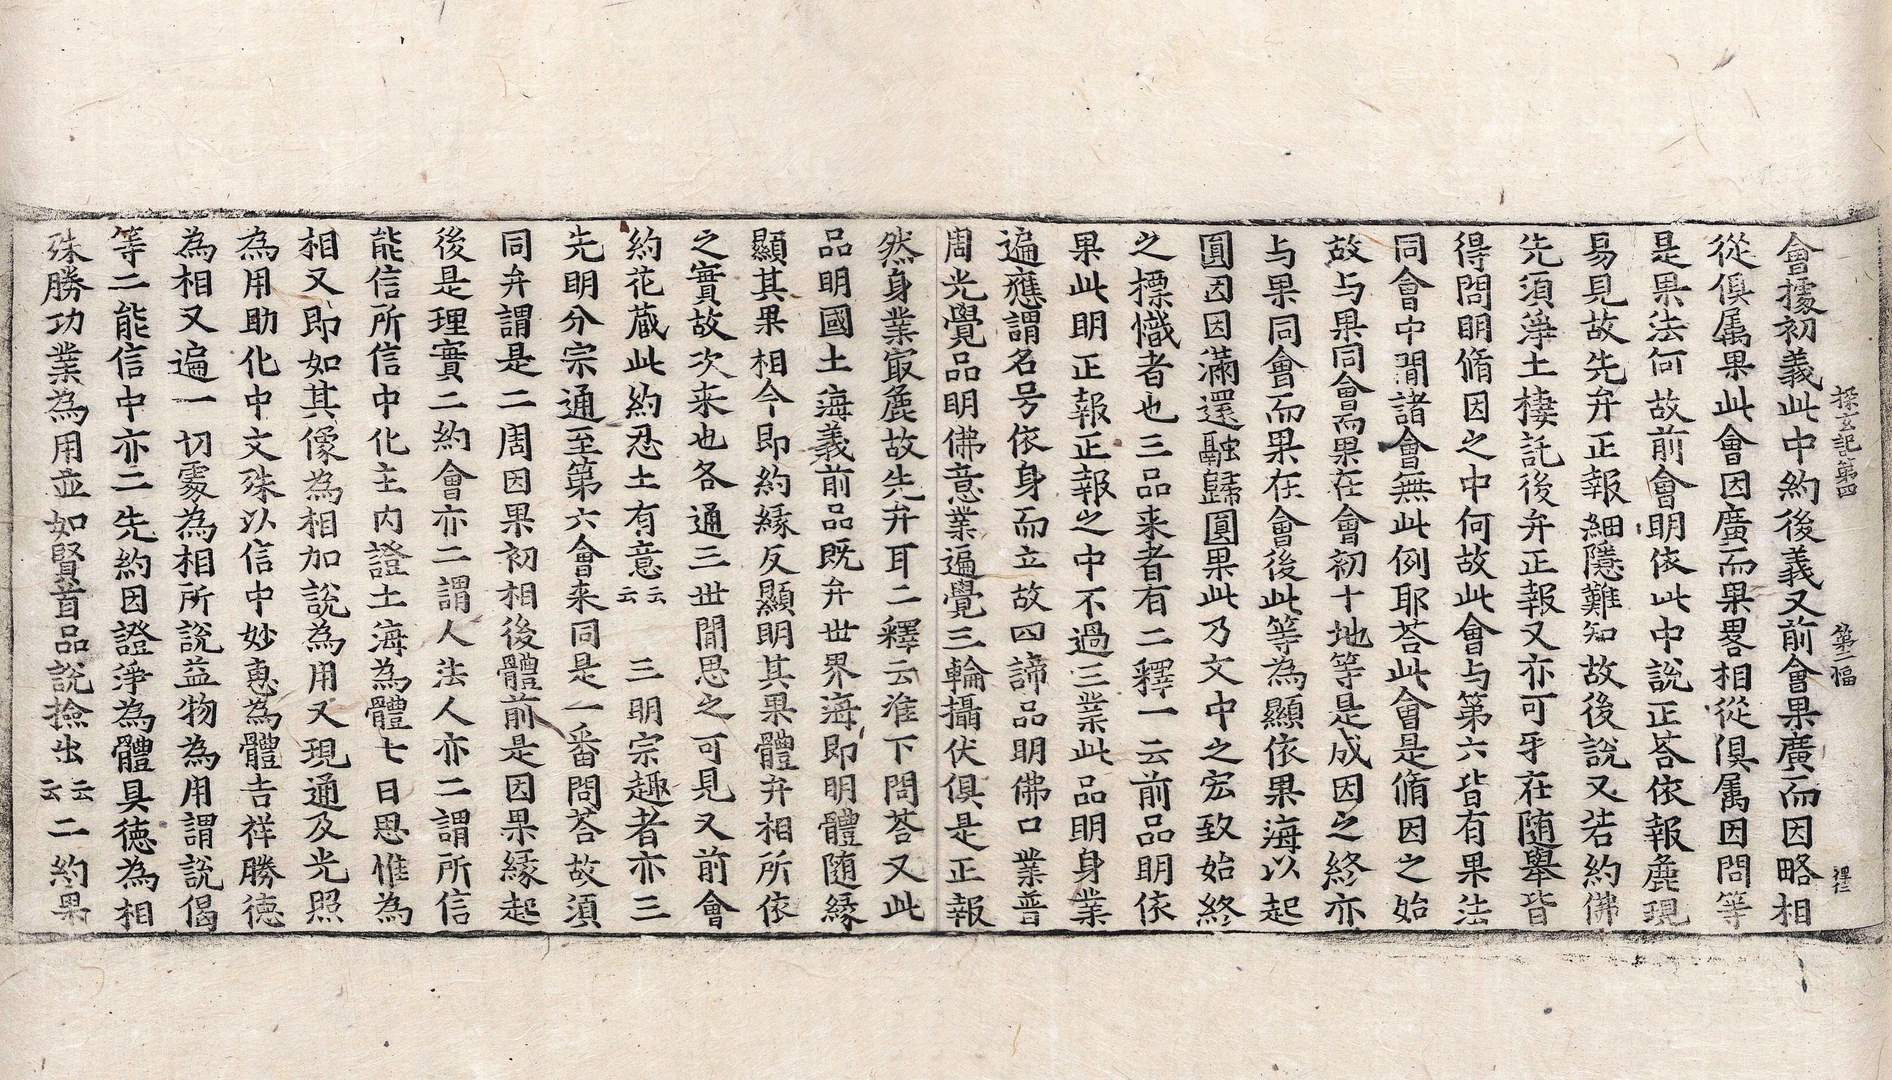 探玄記第四　第二幅　禋
會據初義此中約後義又前會果廣而因略相
從俱属果此會因廣而果畧相從俱属因問等
是果法何故前會明依此中說正荅依報麁現
易見故先弁正報細隱難知故後說又若約佛
先須淨土棲託後弁正報又亦可牙在随舉皆
得問明脩因之中何故此會与第六皆有果法
同會中間諸會無此例耶荅此會是脩因之始
故与果同會而果在會初十地等是成因之終亦
与果同會而果在會後此等為顯依果海以起
圓因因滿還融歸圓果此乃文中之宏致始終
之標幟者也三品来者有二釋一云前品明依
果此明正報正報之中不過三業此品明身業
遍應謂名号依身而立故四諦品明佛口業普
周光覺品明佛意業遍覺三輪攝伏俱是正報
然身業㝡麁故先弁耳二釋云准下問荅又此
品明國土海義前品既弁世界海即明體随緣
顯其果相今即約緣反顯明其果體弁相所依
之實故次来也各通三世間思之可見又前會
約花蔵此約忍土有意云云　三明宗趣者亦三
先明分宗通至第六會来同是一番問荅故須
同弁謂是二周因果初相後體前是因果緣起
後是理實二約會亦二謂人法人亦二謂所信
能信所信中化主内證土海為體七日思惟為
相又即如其像為相加說為用又現通及光照
為用助化中文殊以信中妙惠為體吉祥勝徳
為相又遍一切䖏為相所說益物為用謂說偈
等二能信中亦二先約因證淨為體具徳為相
殊勝功業為用並如賢首品說撿出云云二約果